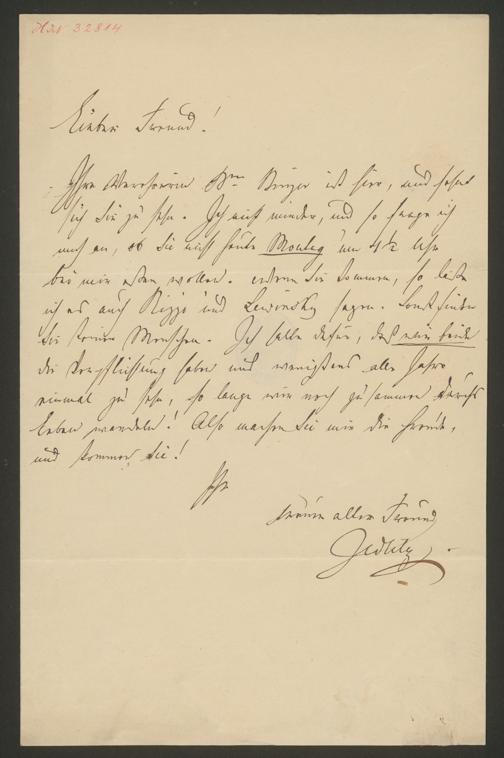 Han 32814
Lieber Freund!
Ihre Verehrerin Bnn Binzer ist hier, und sehnt
sich Sie zu sehn. Ich nicht minder, und so frage ich
mich an, ob Sie nicht heute Montag um 4½ Uhr
bei mir essen wollen. Wenn Sie kommen, so laße
ich es auch Rizzi und Lewinsky sagen. Sonst finden
Sie keine Menschen. Ich halte dafür, daß wir beide
die Verpflichtung haben uns wenigstens alle Jahre
einmal zu sehn, so lange wir noch zusammen durchs
Leben wandeln! Also machen Sie mir die Freude,
und kommen Sie!
Ihr
treuer alter Freund
Zedlitz